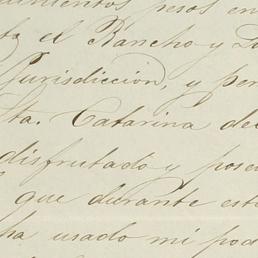 pesos en
el Rancho y
Jurisdiccion, y per
ta. Catarina de
disfrutado y pose
que durante est
ha usado mi pod